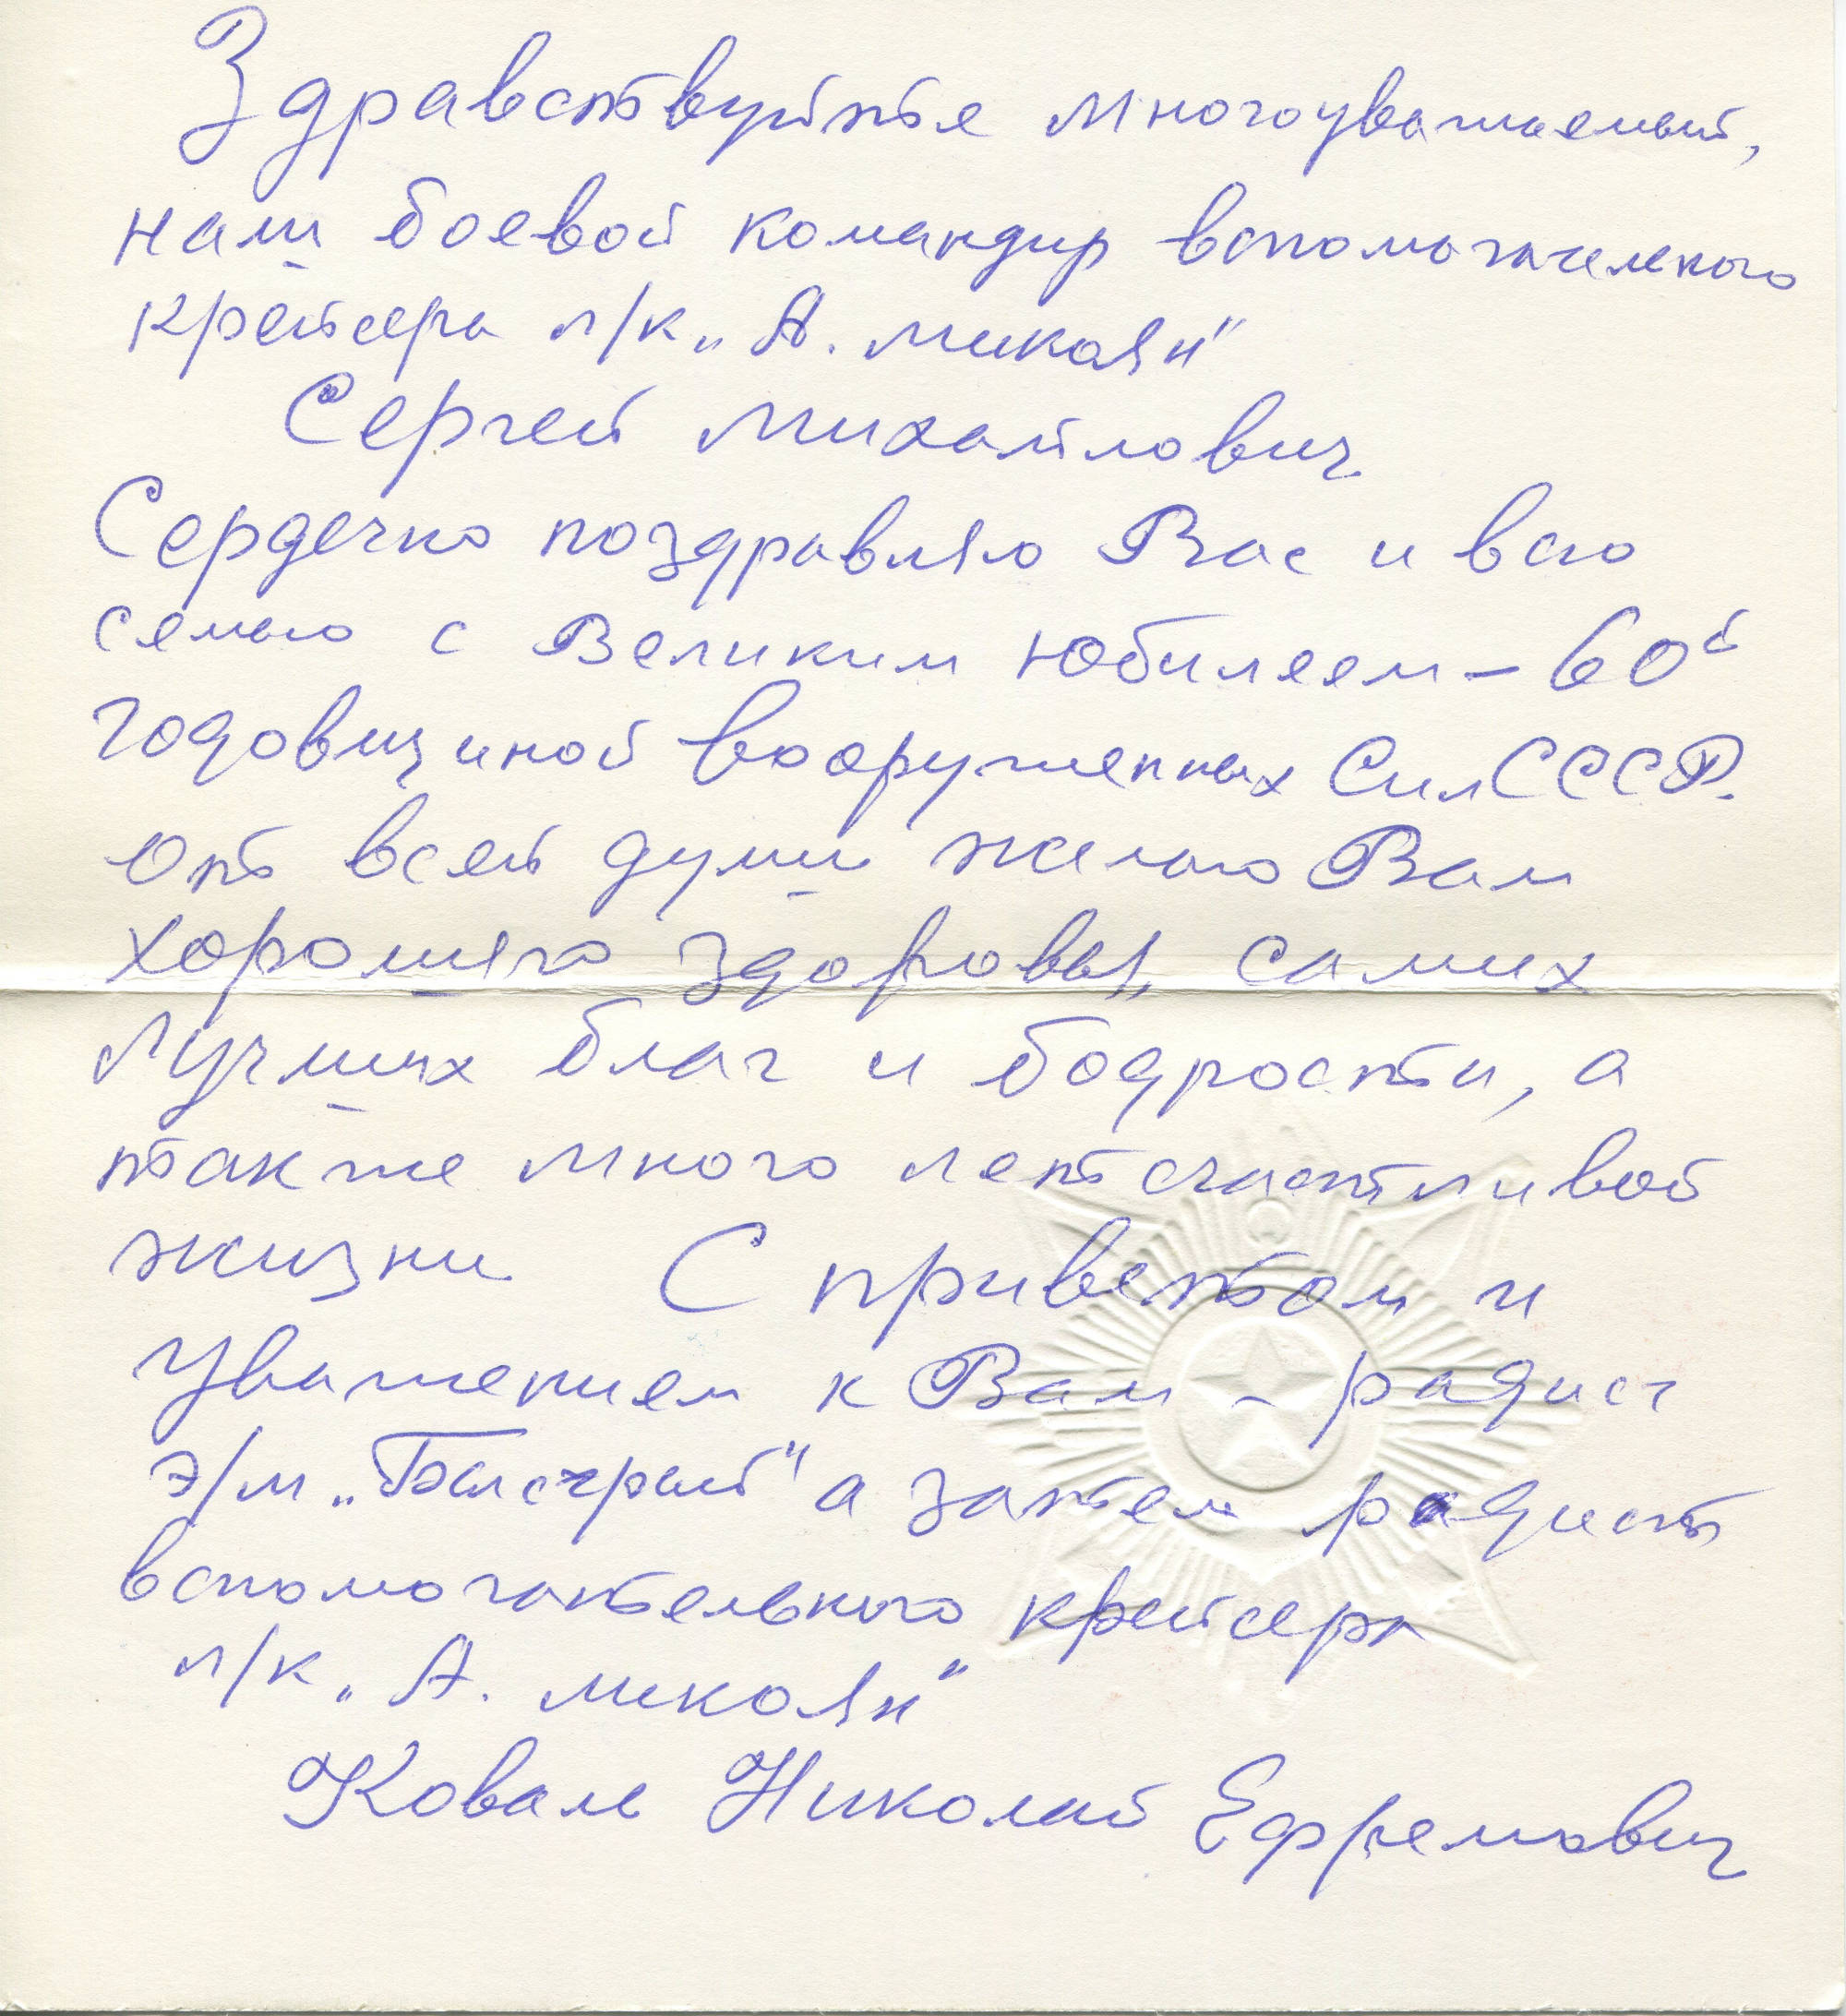 Здравствуйте многоуважаемый,
наш боевой командир вспомогательного
крейсера л/к „А. Микоян"
Сергей Михайлович
Сердечно поздравляю Вас и всю
семью с Великим юбилеем – 60й
годовщиной Вооруженных Сил СССР.
От всей души желаю Вам
хорошего здоровья, самих
лучших благ и бодрости, а
также много лет счастливой
жизни С приветом и
Уважением к Вам – радист
э/м „Быстрый" а затем радист
вспомогательного крейсера
л/к „А. Микоян"
Коваль Николай Ефремович